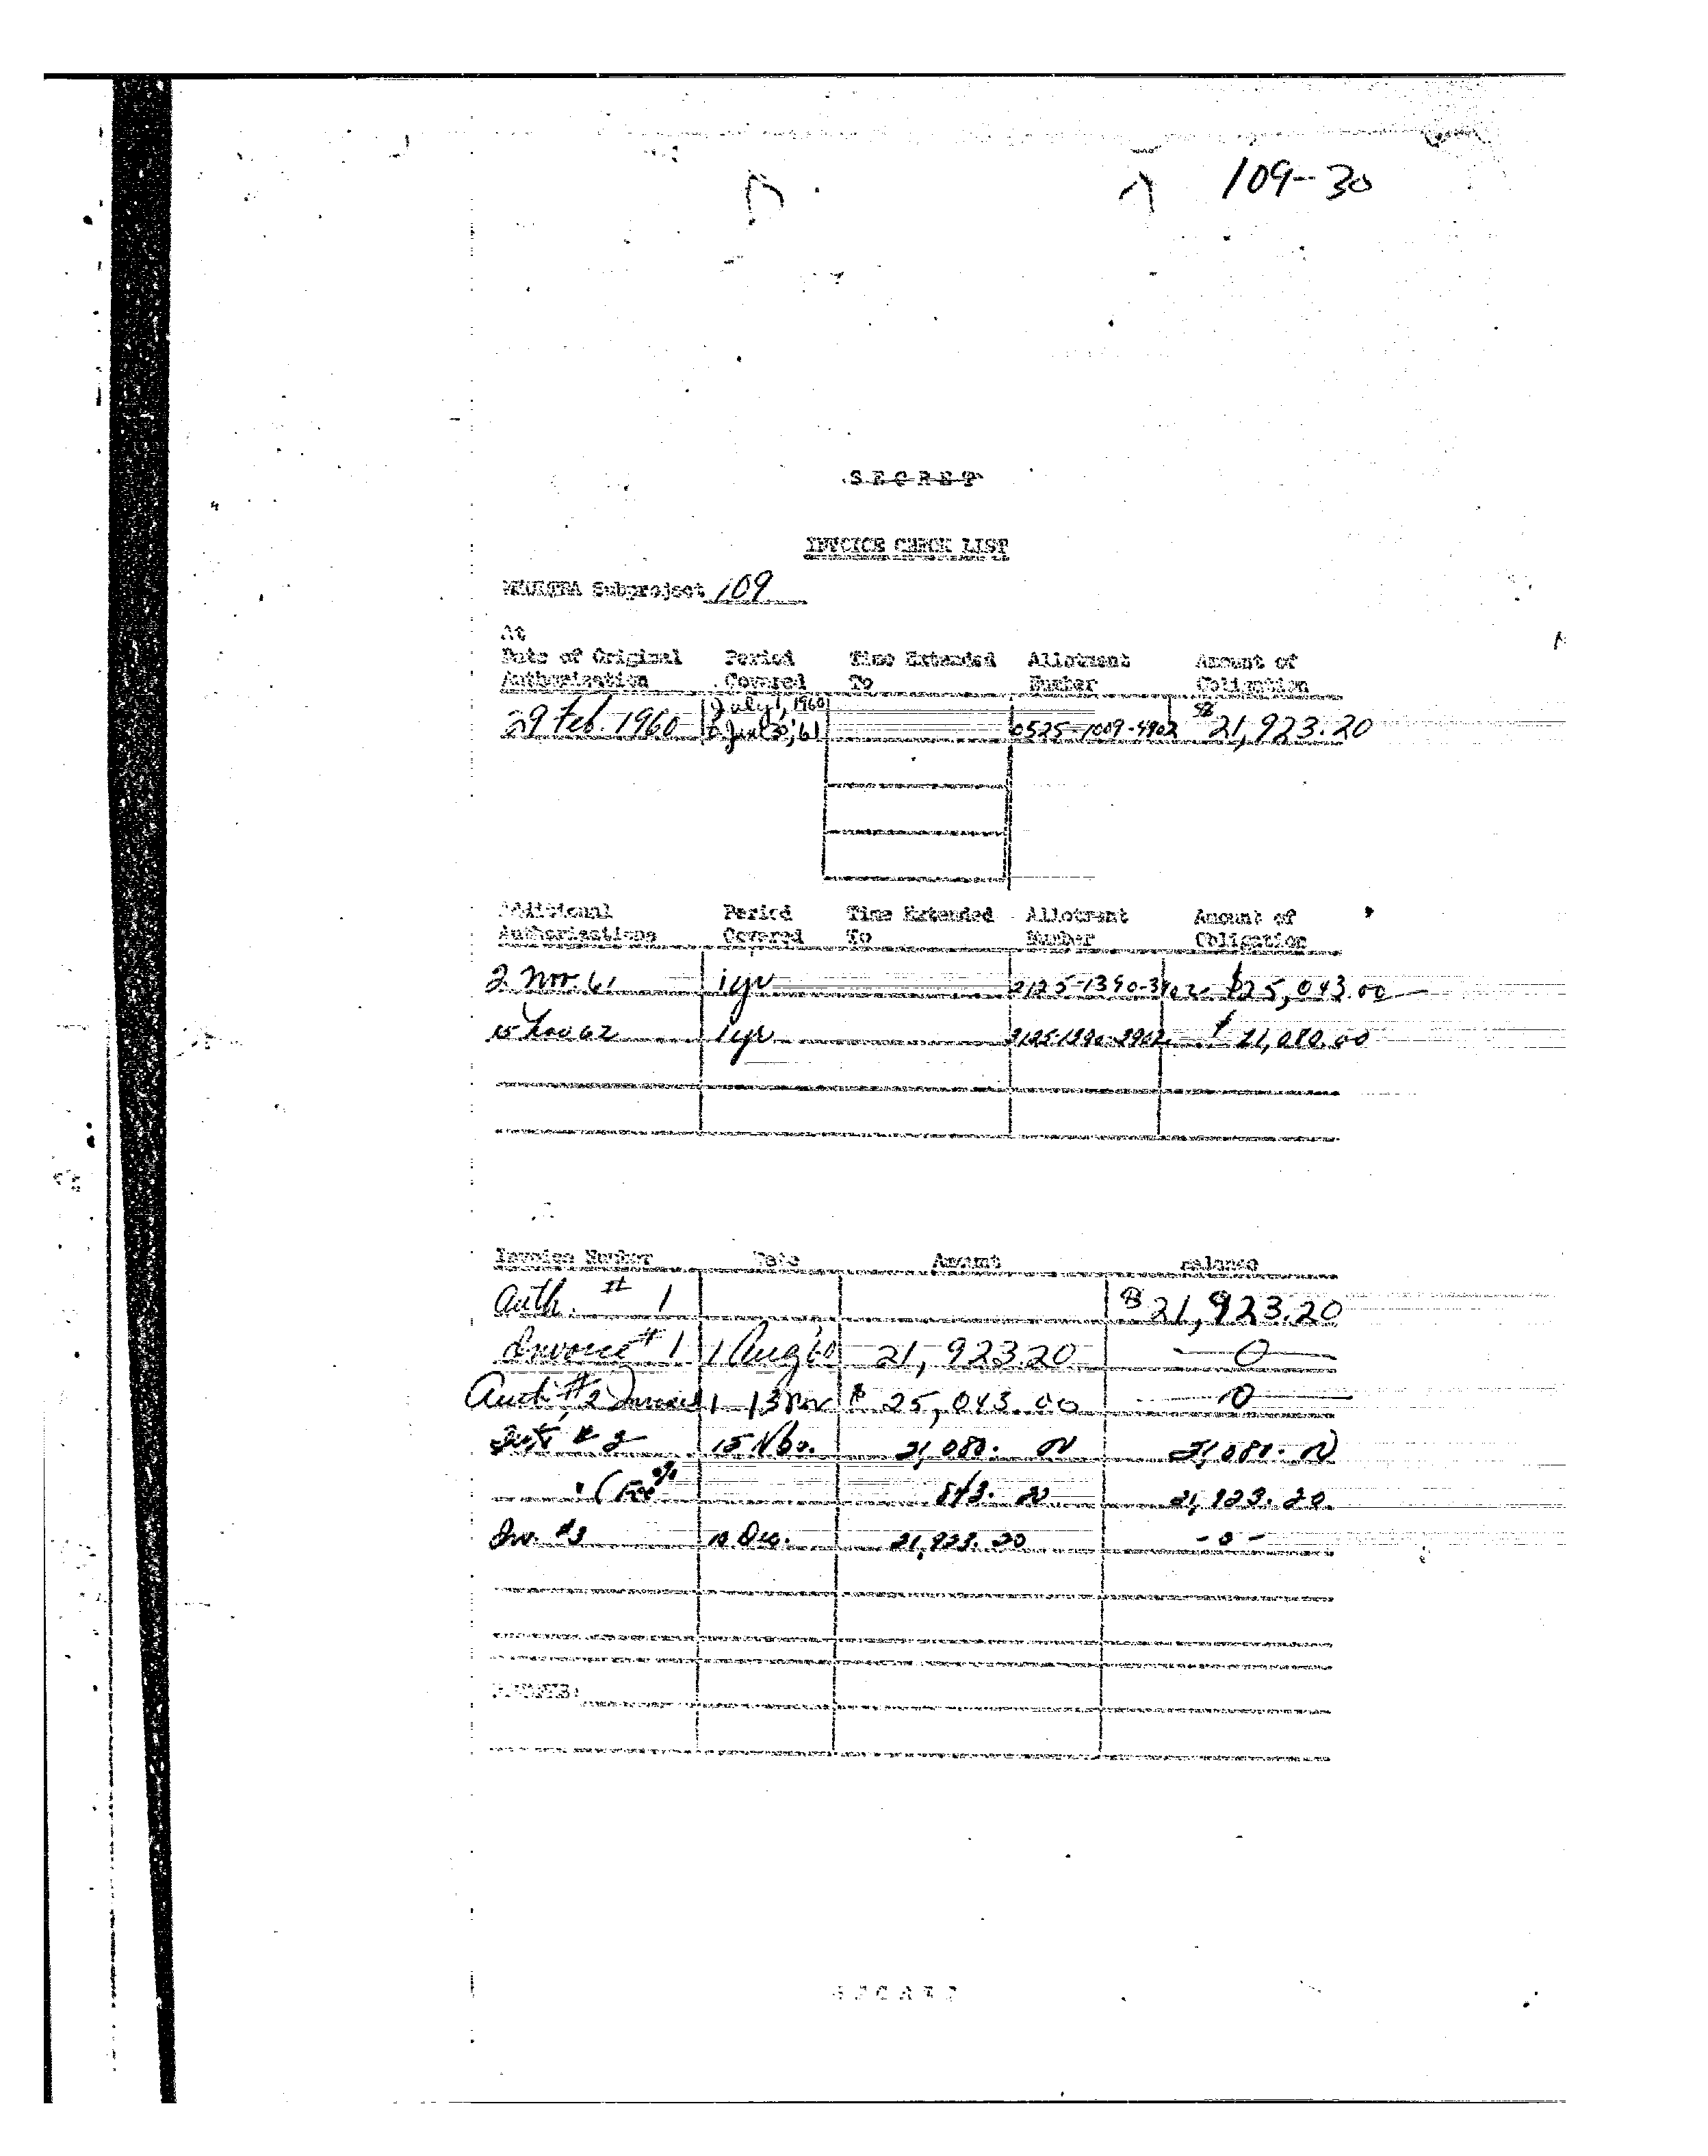 109-30
SECRET
INVOICE CHECK LIST
MKULTRA Subproject 109
At
Date of Original Period Time Extended Allotment Amount of
Authorization Covered To Number Obligation
July 1, 1960
29 Feb. 1960 June 30, '61 0525-1009-4902 $ 21,923.20
Additional Period Time Extended Allotment Amount of
Authorizations Covered To Number Obligation
2 Nov. 61 1 yr 2125-1390-3902 $25,043.00
15 Nov 62 1 yr 3125-1390-3902 $ 21,080.00
Invoice Number Date Amount Balance
Auth. # 1 $ 21,923.20
Invoice # 1 1 Aug '60 21,923.20 0
#2 Invoice 1 13 Nov $ 25,043.00 0
# 2 15 Nov. 21,080. 21,080.
843. 20 21,923.20
Inv. #3 10 Dec. 21,923.20 - 0 -
REMARKS:
SECRET